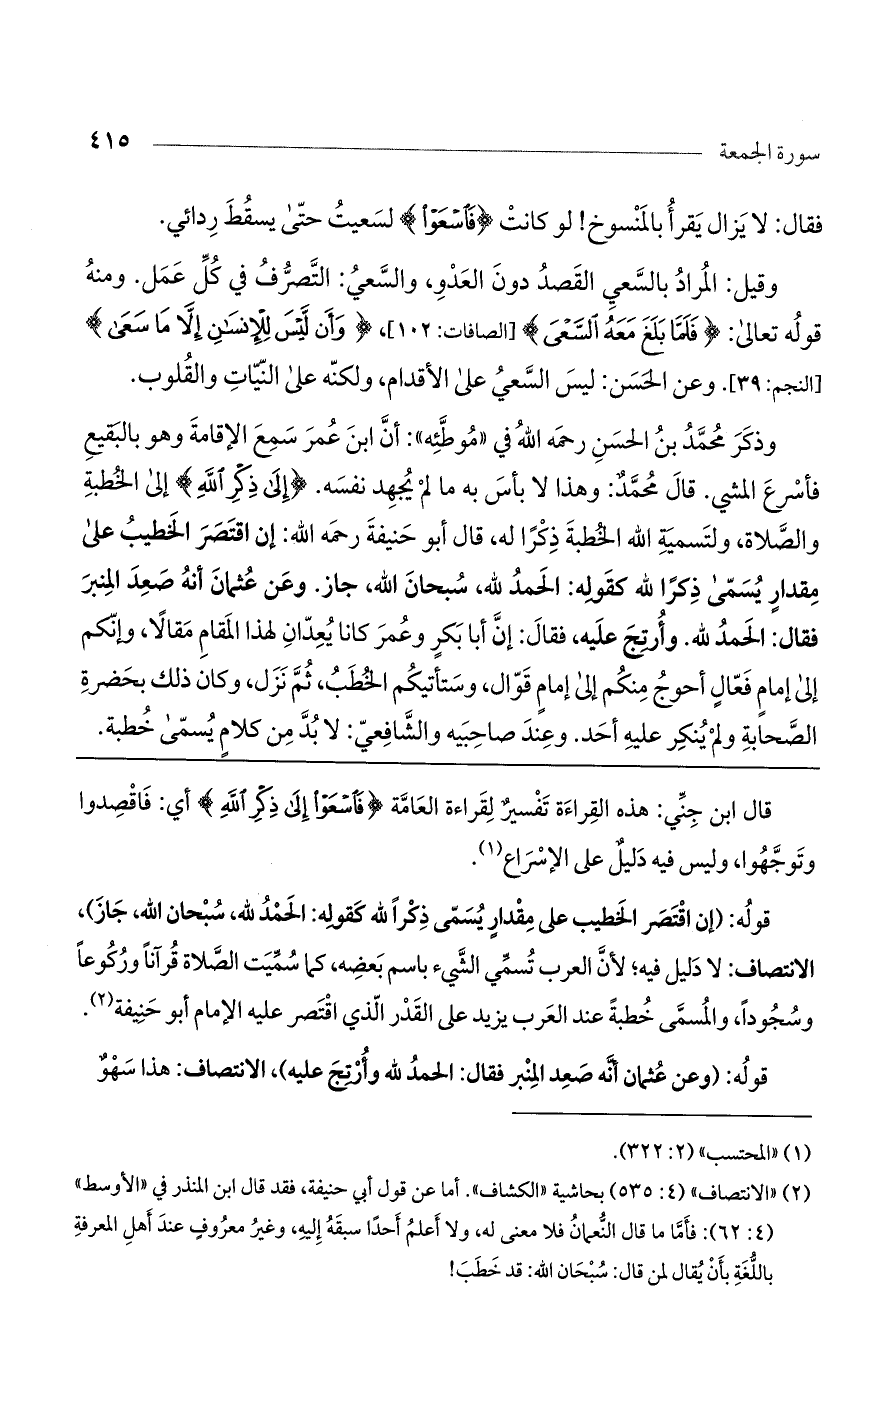 سورة الجمعة ٤١٥
فقال: لا يَزال يَقرأُ بالمَنْسوخ! لو كانتْ ﴿فَٱسْعَوْا۟﴾ لسَعيتُ حتّىٰ يسقُطَ رِدائي.
وقيل: المُرادُ بالسَّعيِ القَصدُ دونَ العَدْوِ، والسَّعيُ: التَّصرُّفُ في كُلِّ عَمَل. ومنهُ
قولُه تعالىٰ: ﴿فَلَمَّا بَلَغَ مَعَهُ ٱلسَّعْىَ﴾ [الصافات: ١٠٢]، ﴿وَأَن لَّيْسَ لِلْإِنسَٰنِ إِلَّا مَا سَعَىٰ﴾
[النجم: ٣٩]. وعن الحَسَن: ليسَ السَّعيُ علىٰ الأقدام، ولكنّه علىٰ النِّيّاتِ والقُلوب.
وذكَرَ مُحمَّدُ بنُ الحسَنِ رحمَه اللهُ في «مُوطَّئِه»: أنَّ ابنَ عُمرَ سَمِعَ الإقامةَ وهو بالبَقيعِ
فأسْرعَ المشي. قالَ مُحمَّدٌ: وهذا لا بأسَ به ما لمْ يُجهِد نفسَه. ﴿إِلَىٰ ذِكْرِ ٱللَّهِ﴾ إلىٰ الخُطبةِ
والصَّلاة، ولتَسميَةِ الله الخُطبةَ ذِكْرًا له، قال أبو حَنيفةَ رحمَه الله: إن اقتَصَرَ الخَطيبُ علىٰ
مِقدارٍ يُسَمّىٰ ذِكرًا لله كقَولِه: الحَمدُ لله، سُبحانَ الله، جاز. وعَن عُثمانَ أنهُ صَعِدَ المِنبرَ
فقال: الحَمدُ لله. وأُرتِجَ علَيه، فقالَ: إنَّ أبا بَكرٍ وعُمرَ كانا يُعِدّانِ لهذا المَقامِ مَقالًا، وإنّكم
إلىٰ إمامٍ فَعّالٍ أحوجُ مِنكُم إلىٰ إمامٍ قَوّال، وسَتأتيكُم الخُطَبُ، ثُمَّ نَزَل، وكان ذلك بحَضرةِ
الصَّحابةِ ولمْ يُنكِر عليهِ أحَد. وعِندَ صاحِبَيه والشَّافعِيّ: لا بُدَّ مِن كلامٍ يُسمّىٰ خُطبة.
قال ابن جِنِّي: هذه القِراءَة تَفْسيرٌ لِقَراءة العَامَّة ﴿فَٱسْعَوْا۟ إِلَىٰ ذِكْرِ ٱللَّهِ﴾ أي: فَاقْصِدوا
وتَوجَّهُوا، وليس فيه دَليلٌ على الإسْرَاع(١).
قولُه: (إن اقْتَصَر الخَطيب على مِقْدارٍ يُسَمّى ذِكْراً لله كَقولِه: الحَمْدُ لله، سُبْحان الله، جَازَ)،
الانتصاف: لا دَليل فيه؛ لأنَّ العرب تُسمِّي الشَّيء باسم بَعضِه، كما سُمِّيَت الصَّلاة قُرآناً ورُكُوعاً
وسُجُوداً، والمُسمَّى خُطبةً عند العَرب يزيد على القَدْر الّذي اقْتَصر عليه الإمام أبو حَنِيفة(٢).
قولُه: (وعن عُثمان أنَّه صَعِد المِنْبر فقال: الحمدُ لله وأُرْتِجَ عليه)، الانتصاف: هذا سَهْوٌ
(١) «المحتسب» (٢: ٣٢٢).
(٢) «الانتصاف» (٤: ٥٣٥) بحاشية «الكشاف». أما عن قول أبي حنيفة، فقد قال ابن المنذر في «الأوسط»
(٤: ٦٢): فأمَّا ما قال النُّعمانُ فلا معنى له، ولا أعلمُ أحدًا سبقَهُ إليهِ، وغيرُ معرُوفٍ عندَ أهلِ المعرفةِ
باللُّغَةِ بأَنْ يُقال لمن قال: سُبْحَان الله: قد خَطَبَ!